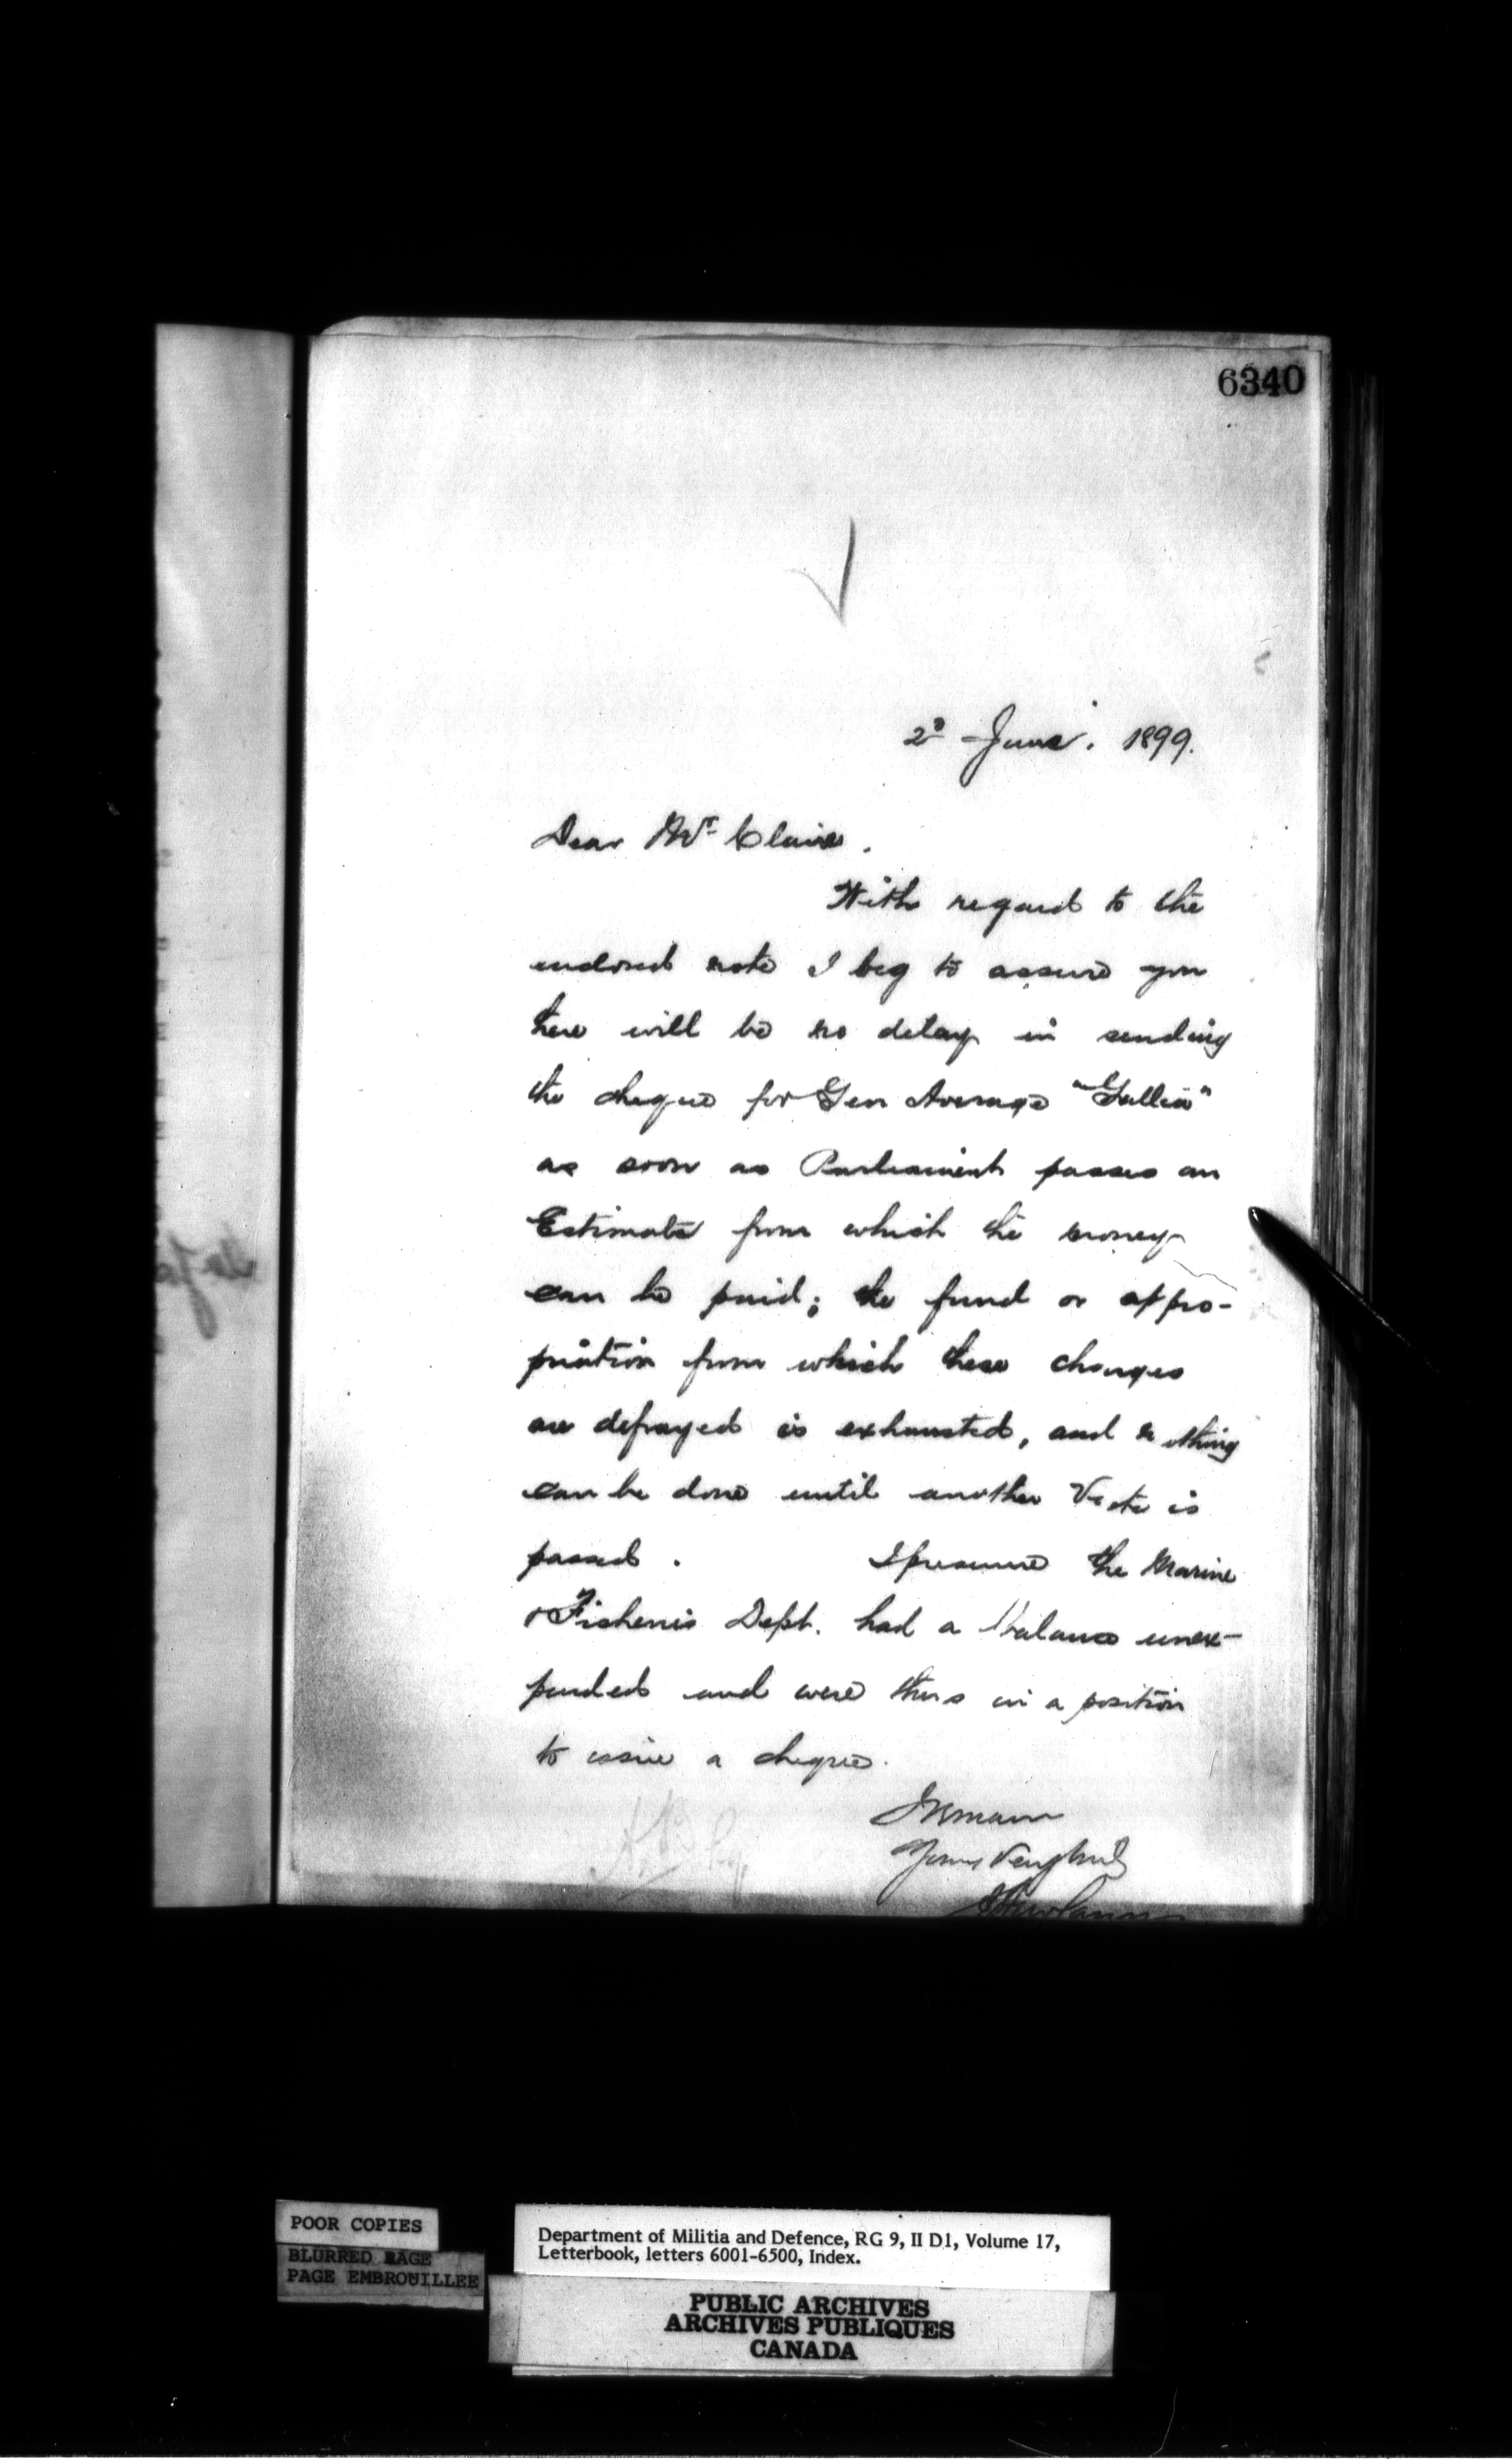 6340
2d June. 1899.
Dear Mr
With regard to the
enclosed note I beg to assure you
there will be no delay in sending
the cheque for Gen Average "Gallia"
as soon as Parliament passes an
Estimate from which the money
can be paid; the fund or appro-
priation from which these charges
are defrayed is exhausted, and nothing
can be done until another Vote is
passed. I presume the Marine
& Fisheries Dept. had a balance unex-
pended and were thus in a position
to issue a cheque.
I remain
Yours very truly
POOR COPIES
BLURRED PAGE
PAGE EMBROUILLEE
Department of Militia and Defence, RG 9, II D1, Volume 17,
Letterbook, letters 6001-6500, Index.
PUBLIC ARCHIVES
ARCHIVES PUBLIQUES
CANADA